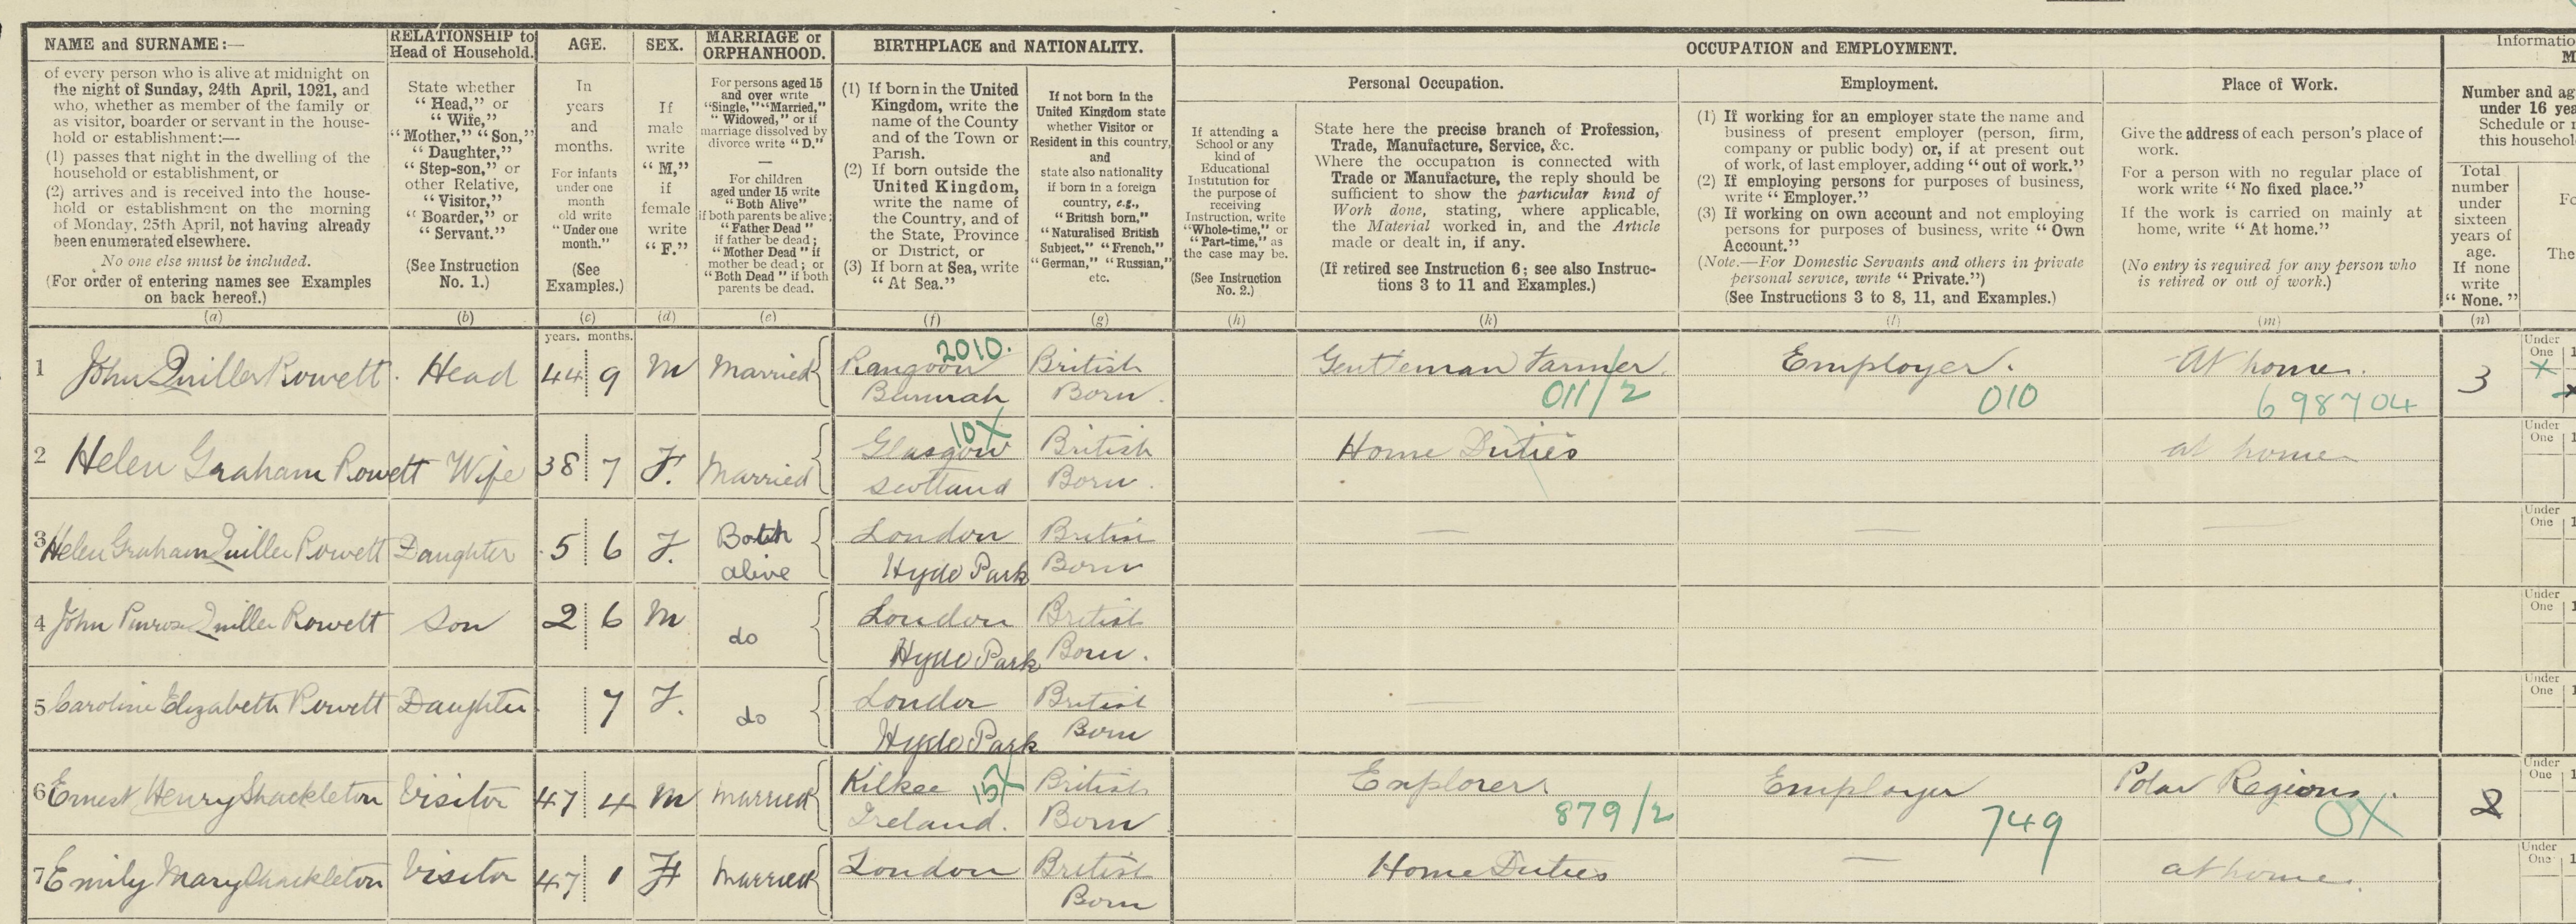 NAME and SURNAME:—
of every person who is alive at midnight on
the night of Sunday, 24th April, 1921, and
who, whether as member of the family or
as visitor, boarder or servant in the house-
hold or establishment:—
(1) passes that night in the dwelling of the
household or establishment, or
(2) arrives and is received into the house-
hold or establishment on the morning
of Monday, 25th April, not having already
been enumerated elsewhere.
No one else must be included.
(For order of entering names see Examples
on back hereof.)
(a)
RELATIONSHIP to
Head of Household.
State whether
"Head," or
"Wife,"
"Mother," "Son,"
"Daughter,"
"Step-son," or
other Relative,
"Visitor,"
"Boarder," or
"Servant."
(See Instruction
No. 1.)
(b)
AGE.
In
years
and
months.
For infants
under one
month
old write
"Under one
month."
(See
Examples.)
(c)
SEX.
If
male
write
"M,"
if
female
write
"F."
(d)
MARRIAGE or
ORPHANHOOD.
For persons aged 15
and over write
"Single," "Married,"
"Widowed," or if
marriage dissolved by
divorce write "D."
—
For children
aged under 15 write
"Both Alive"
if both parents be alive;
"Father Dead"
if father be dead;
"Mother Dead" if
mother be dead; or
"Both Dead" if both
parents be dead.
(e)
BIRTHPLACE and NATIONALITY.
(1) If born in the United
Kingdom, write the
name of the County
and of the Town or
Parish.
(2) If born outside the
United Kingdom,
write the name of
the Country, and of
the State, Province
or District, or
(3) If born at Sea, write
"At Sea."
(f)
If not born in the
United Kingdom state
whether Visitor or
Resident in this country,
and
state also nationality
if born in a foreign
country, e.g.,
"British born,"
"Naturalised British
Subject," "French,"
"German," "Russian,"
etc.
(g)
OCCUPATION and EMPLOYMENT.
If attending a
School or any
kind of
Educational
Institution for
the purpose of
receiving
Instruction, write
"Whole-time," or
"Part-time," as
the case may be.
(See Instruction
No. 2.)
(h)
Personal Occupation.
State here the precise branch of Profession,
Trade, Manufacture, Service, &c.
Where the occupation is connected with
Trade or Manufacture, the reply should be
sufficient to show the particular kind of
Work done, stating, where applicable,
the Material worked in, and the Article
made or dealt in, if any.
(If retired see Instruction 6; see also Instruc-
tions 3 to 11 and Examples.)
(k)
Employment.
(1) If working for an employer state the name and
business of present employer (person, firm,
company or public body) or, if at present out
of work, of last employer, adding "out of work."
(2) If employing persons for purposes of business,
write "Employer."
(3) If working on own account and not employing
persons for purposes of business, write "Own
Account."
(Note.—For Domestic Servants and others in private
personal service, write "Private.")
(See Instructions 3 to 8, 11, and Examples.)
(l)
Place of Work.
Give the address of each person's place of
work.
For a person with no regular place of
work write "No fixed place."
If the work is carried on mainly at
home, write "At home."
(No entry is required for any person who
is retired or out of work.)
(m)
Informatio
M
Number and ag
under 16 yea
Schedule or
this househol
Total
number
under
sixteen
years of
age.
If none
write
"None."
(n)
Fo
The
years. months.
1 John Quiller Rowett. Head 44 9 M Married Rangoon 2010. British Gentleman Farmer. Employer. At home. 3 Under One 1
Burmah Born. 011/2 010 698704
2 Helen Graham Rowett Wife 38 7 F. Married Glasgow 10X British Home Duties at home Under One 1
Scotland Born.
3 Helen Graham Quiller Rowett Daughter 5 6 F. Both London British — — — Under One 1
alive Hyde Park Born
4 John Penrose Quiller Rowett Son 2 6 M do London British Under One 1
Hyde Park Born.
5 Caroline Elizabeth Rowett Daughter 7 F. do London British — Under One 1
Hyde Park Born
6 Ernest Henry Shackleton Visitor 47 4 M Married Kilkee 15X British Explorer. Employer Polar Regions. 2 Under One 1
Ireland. Born 879/2 749 OX
7 Emily Mary Shackleton Visitor 47 1 F Married London British Home Duties — at home. Under One 1
Born